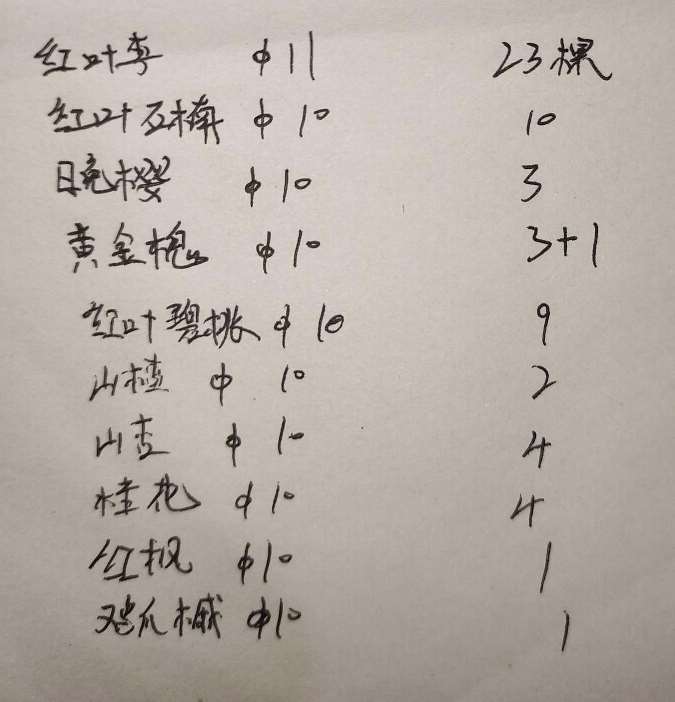 红叶李 φ11 23棵
红叶石楠 φ10 10
日晚樱 φ10 3
黄金槐 φ10 3+1
红叶碧桃 φ10 9
山楂 φ10 2
山杏 φ10 4
桂花 φ10 4
红枫 φ10 1
鸡爪槭 φ10 1